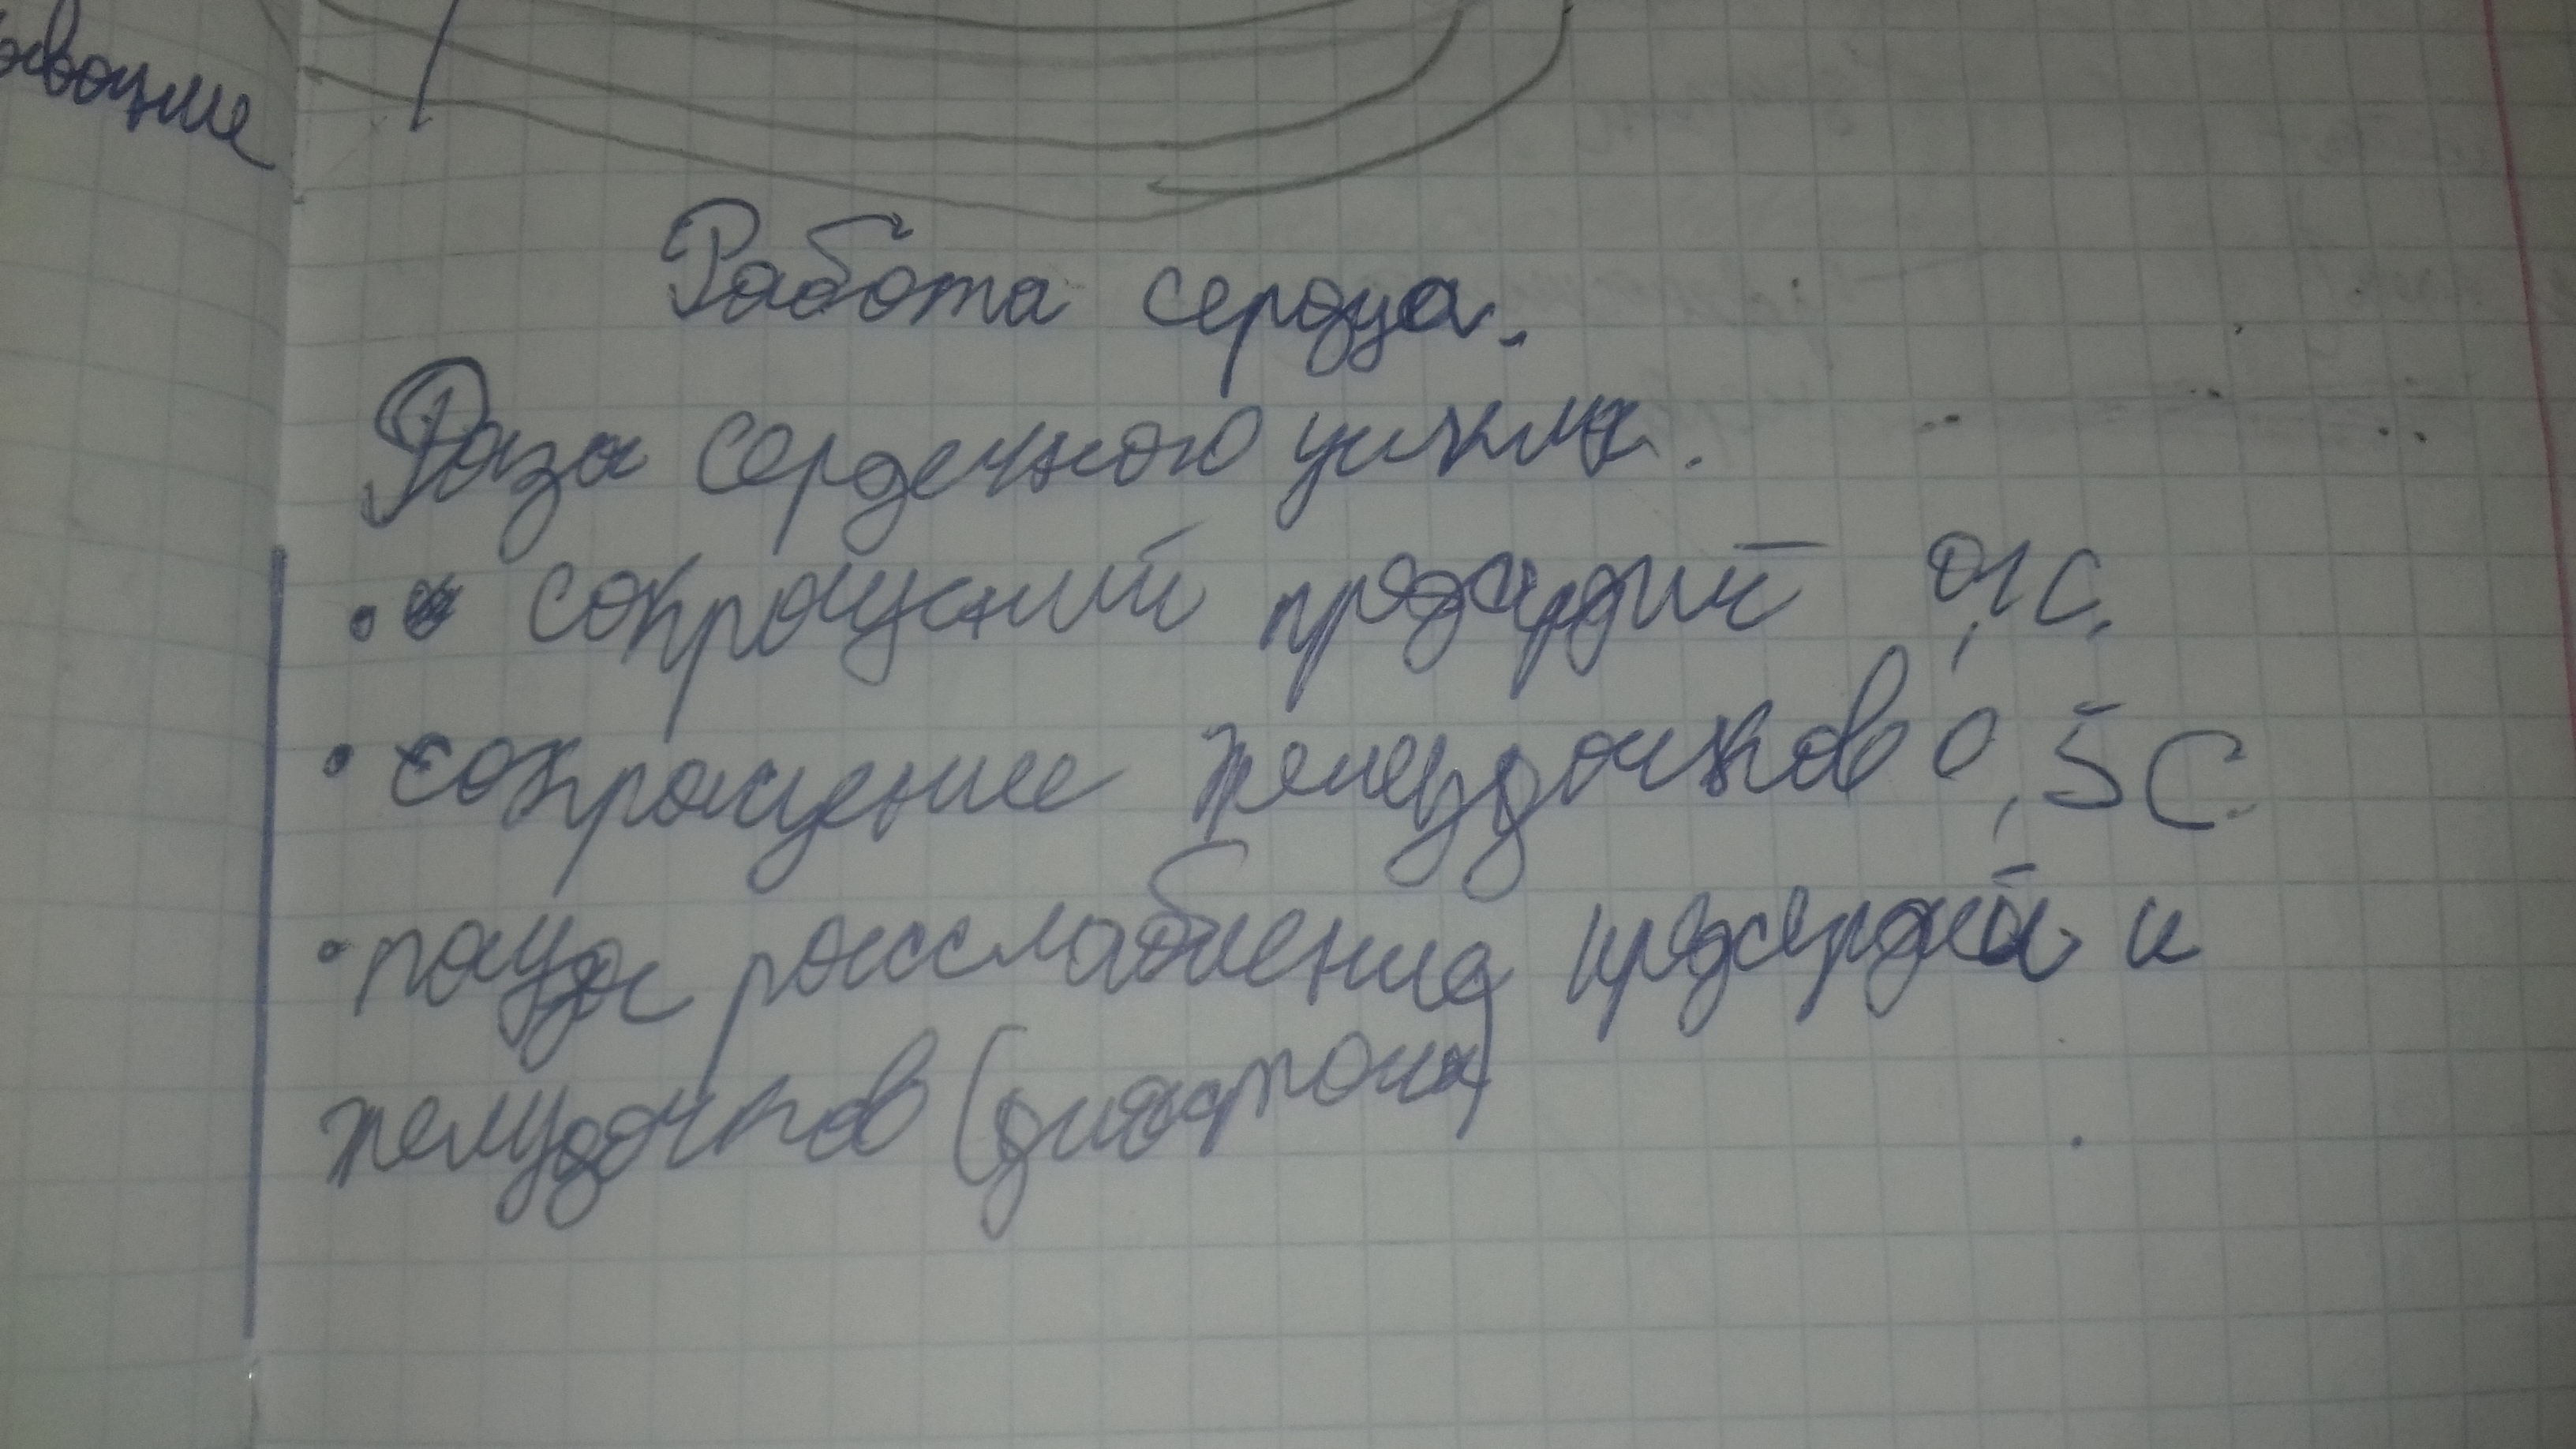 Работа сердца.
Фаза сердечного цикла.
• сокращений предсердий 0,1 с.
• сокращение желудочков 0,5 с
• пауза расслабления предсердий и
желудочков (диастола)